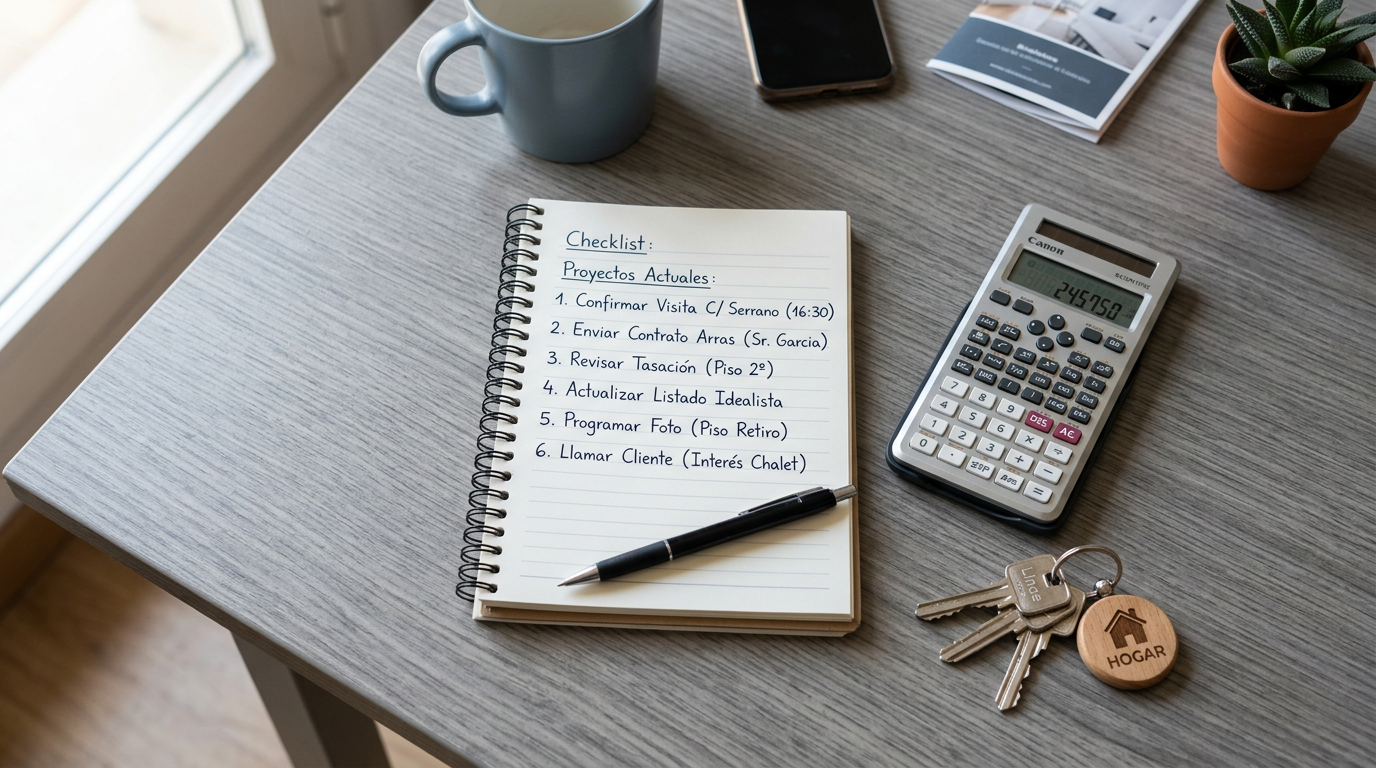 Checklist:
Proyectos Actuales:
1. Confirmar Visita C/ Serrano (16:30)
2. Enviar Contrato Arras (Sr. Garcia)
3. Revisar Tasación (Piso 2º)
4. Actualizar Listado Idealista
5. Programar Foto (Piso Retiro)
6. Llamar Cliente (Interés Chalet)
Canon
245750
7 8 9
AC
4 5 6 × ÷
1 2 3 + −
0 . =
HOGAR